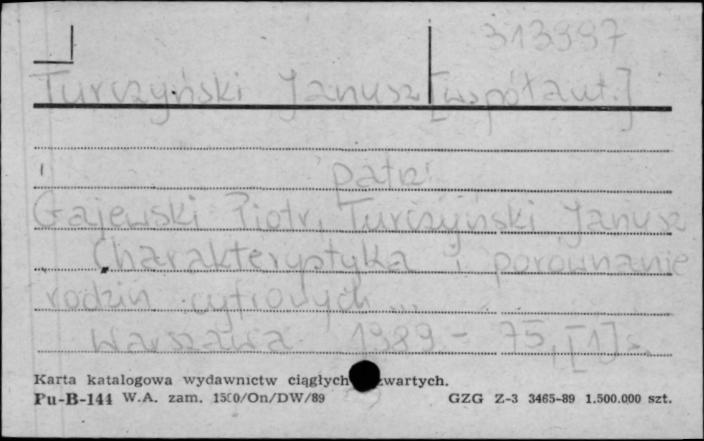 313997
Turczyński Janusz [współaut.]
patrz
Gajewski Piotr, Turczyński Janusz
Charakterystyka i porównanie
rodzin cyfrowych ...
Warszawa 1989 - 75, [1] s.
Karta katalogowa wydawnictw ciągłych zwartych.
Pu-B-144 W.A. zam. 1500/On/DW/89 GZG Z-3 3465-89 1.500.000 szt.